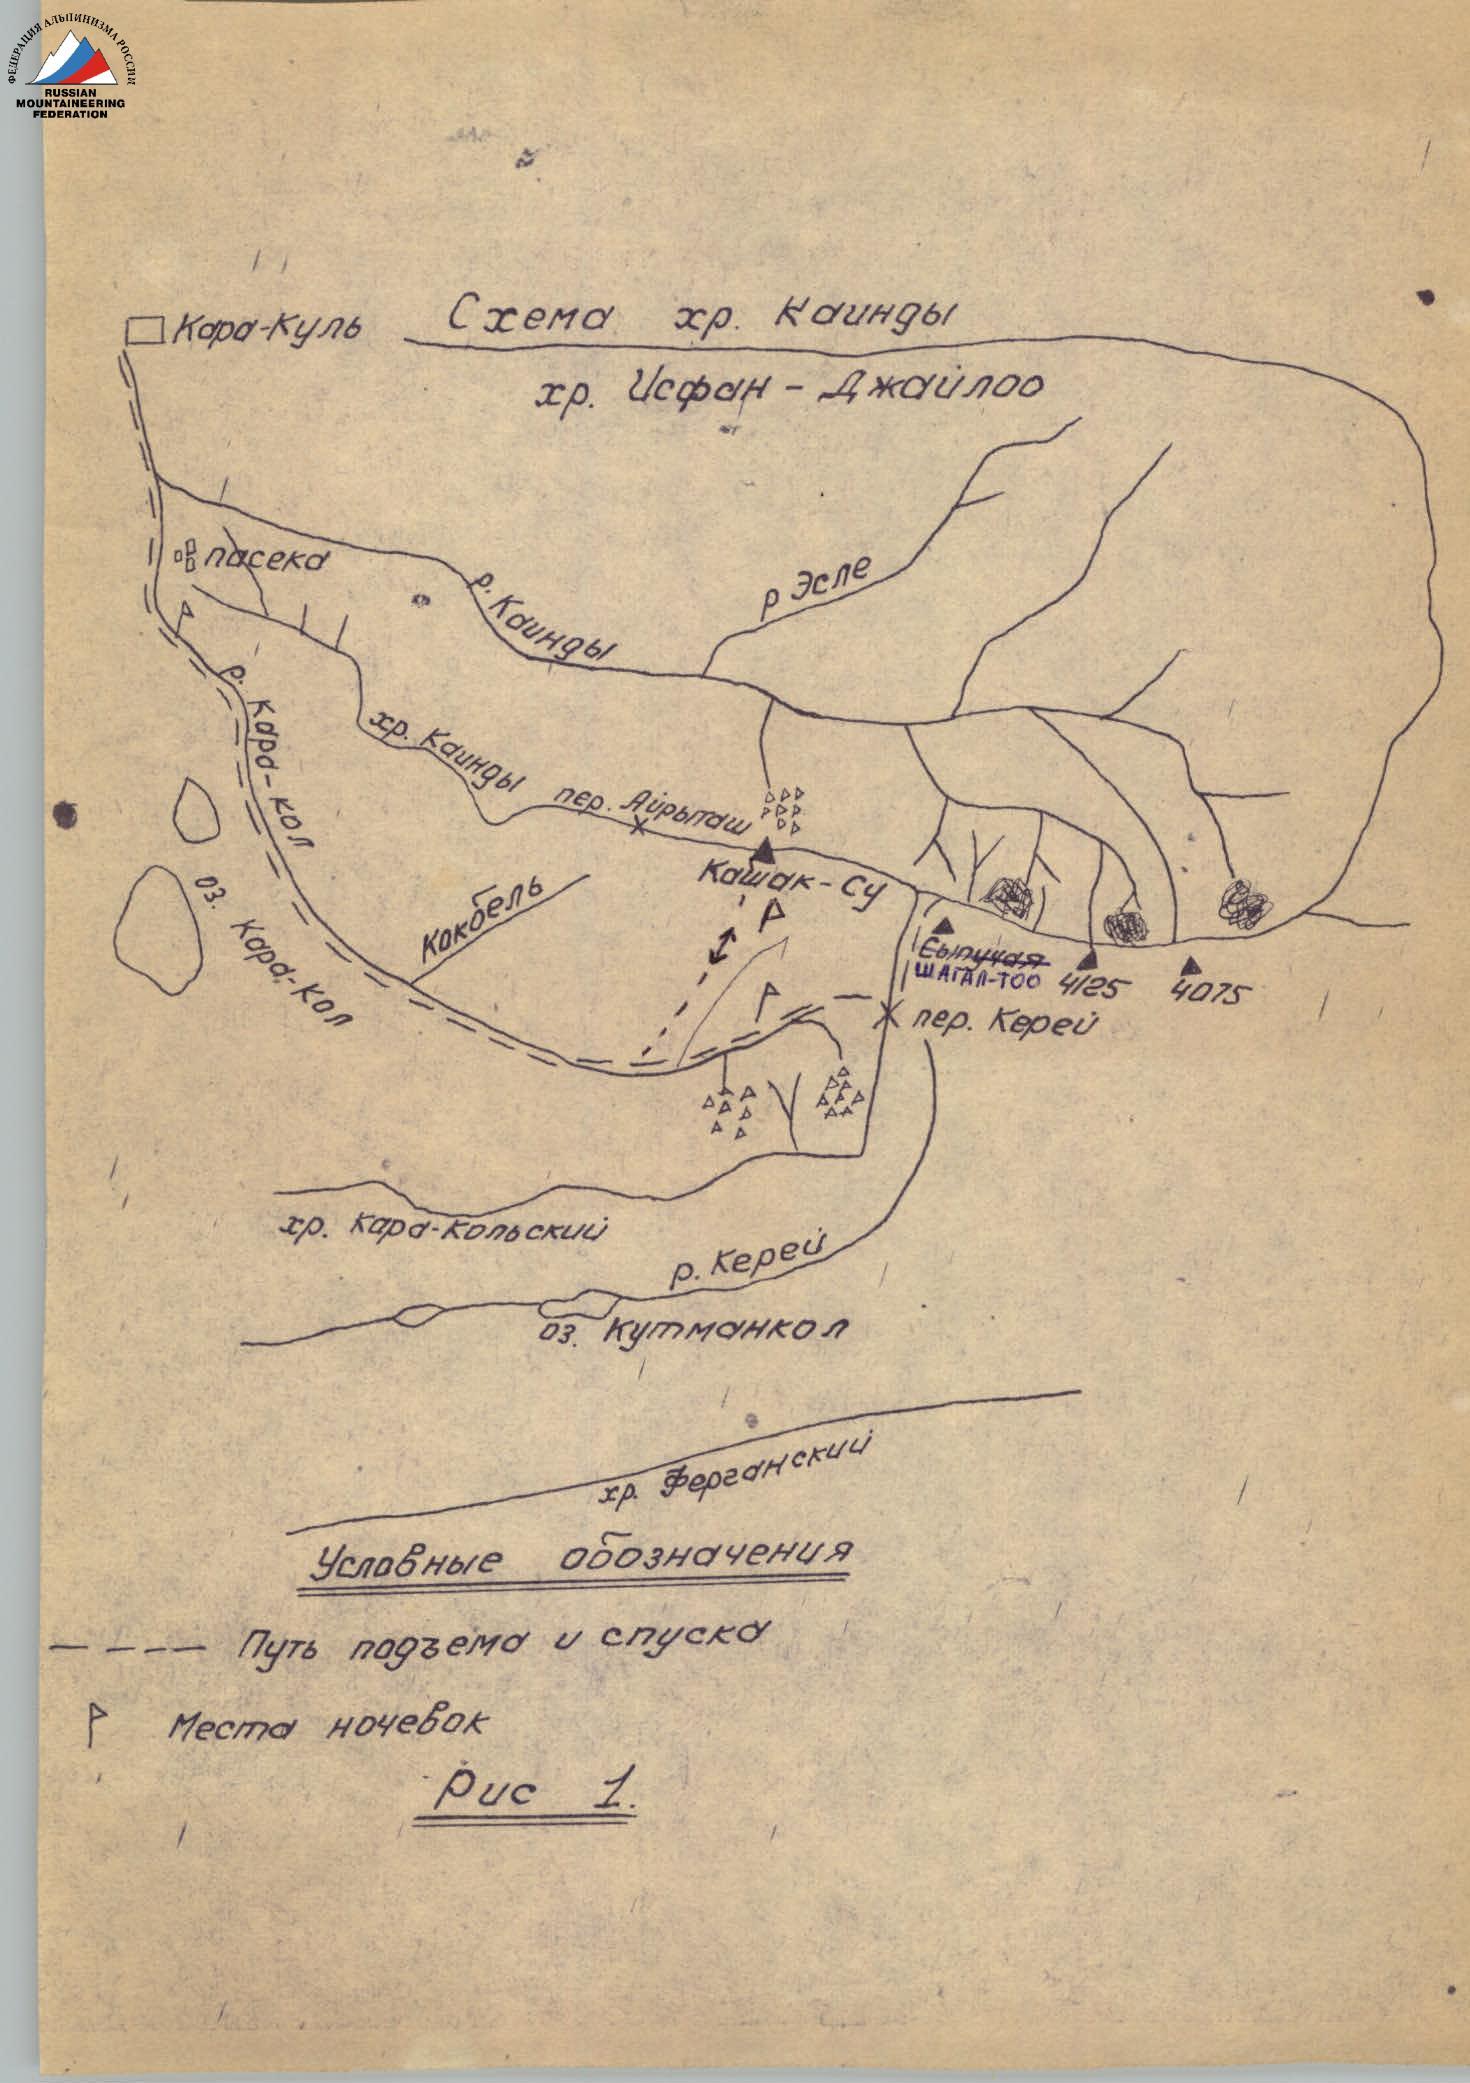 ФЕДЕРАЦИЯ АЛЬПИНИЗМА РОССИИ
RUSSIAN
MOUNTAINEERING
FEDERATION
Схема хр. Каинды
Кара-Куль
хр. Исфан - Джайлоо
пасека
р. Каинды
р Эсле
р. Кара-кол
хр. Каинды
пер. Айрыташ
Кашак-су
оз. Кара-кол
Кокбель
Сыпучая
ШАГАЛ-ТОО
4125
4075
пер. Керей
хр. Кара-Кольский
р. Керей
оз. Кутманкол
хр. Ферганский
Условные обозначения
Путь подъема и спуска
Места ночевок
Рис 1.